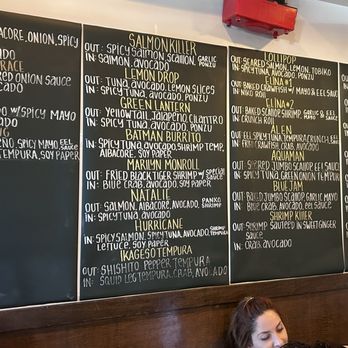 ACORE, ONION, SPICY
RACE
RED ONION SAUCE
AVOCADO
W/ SPICY MAYO
SPICY MAYO, EEL SAUCE
TEMPURA, SPICY TUNA
SALMON KILLER
OUT: SPICY SALMON SCALLION, GARLIC PONZU
IN: SALMON, AVOCADO
LEMON DROP
OUT: TUNA, AVOCADO, LEMON SLICES
IN: SPICY TUNA, AVOCADO, PONZU
GREEN LANTERN
OUT: YELLOWTAIL, JALAPENO, CILANTRO
IN: SPICY TUNA, AVOCADO, PONZU
BATMAN BURRITO
IN: SPICY TUNA, AVOCADO, SHRIMP TEMP,
ALBACORE, SOY PAPER
MARILYN MONROLL
OUT: FRIED BLACK TIGER SHRIMP W/ SPECIAL SAUCE
IN: BLUE CRAB, AVOCADO, SOY PAPER
NATALIE
OUT: SALMON, ALBACORE, AVOCADO, PANKO SHRIMP
IN: SPICY TUNA, AVOCADO
HURRICANE
IN: SPICY SALMON, SPICY TUNA, AVOCADO, SHRIMP TEMPURA
LETTUCE, SOY PAPER
IKAGESO TEMPURA
OUT: SHISHITO PEPPER TEMPURA
IN: SQUID LEG TEMPURA, CRAB, AVOCADO
LOLLIPOP
OUT: SEARED SALMON, LEMON, TOBIKO
IN: SPICY TUNA, AVOCADO, PONZU
ELINA #1
OUT: BAKED CRAWFISH W/ MAYO & EEL SAUCE
IN: NIKO ROLL
ELINA #2
OUT: BAKED SCALLOP, SHRIMP, GARLIC & EEL SAUCE
IN: CRUNCH ROLL
ALEN
OUT: EEL, SPICY TUNA, TEMPURA CRUNCH, EEL SAUCE
IN: FRIED CRAWFISH, CRAB, AVOCADO
AQUAMAN
OUT: SEARED JUMBO SCALLOP, EEL SAUCE
IN: SPICY TUNA, GREEN ONION TEMPURA
BLUE JAM
OUT: BAKED JUMBO SCALLOP, GARLIC MAYO
IN: BLUE CRAB, EEL, AVOCADO
SHRIMP KILLER
OUT: SHRIMP SAUTEED IN SWEET GINGER
SAUCE
IN: CRAB, AVOCADO